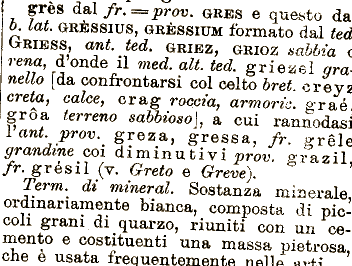 grès dal fr. = prov. GRES e questo da
b. lat. GRÈSSIUS, GRÈSSIUM formato dal ted
GRIESS, ant. ted. GRIEZ, GRIOZ sabbia o
rena, d'onde il med. alt. ted. griezel gra-
nello [da confrontarsi col celto bret. creyz
creta, calce, crag roccia, armoric. graé,
grôa terreno sabbioso], a cui rannodasi
l'ant. prov. greza, gressa, fr. grêle
grandine coi diminutivi prov. grazil,
fr. grésil (v. Greto e Greve).
Term. di mineral. Sostanza minerale,
ordinariamente bianca, composta di pic-
coli grani di quarzo, riuniti con un ce-
mento e costituenti una massa pietrosa,
che è usata frequentemente nelle arti